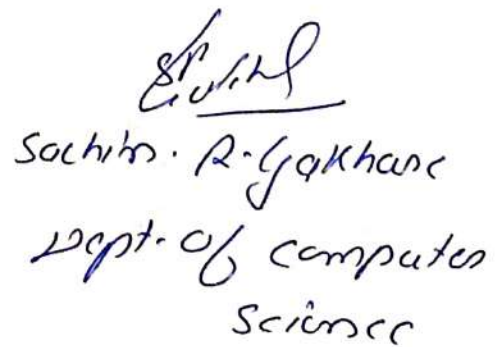 Sachin. R. Gakhare
Dept. of Computer
Science